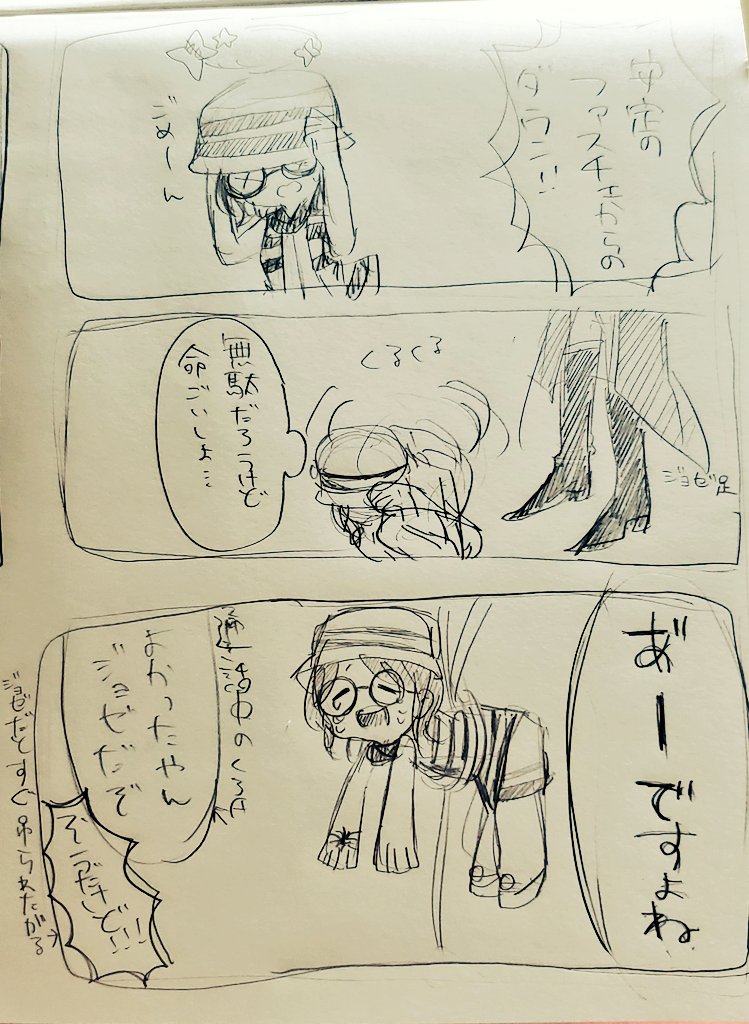 安定の
ファスチェからの
ダウン!!
じぬーん
ジョゼ足
くるくる
無駄だろうけど
命ごいしよ…
あ゛ーですよね
通話中の
よかったやん
ジョゼだぞ
そうだけど!!!
ジョゼだとすぐ吊られたがる